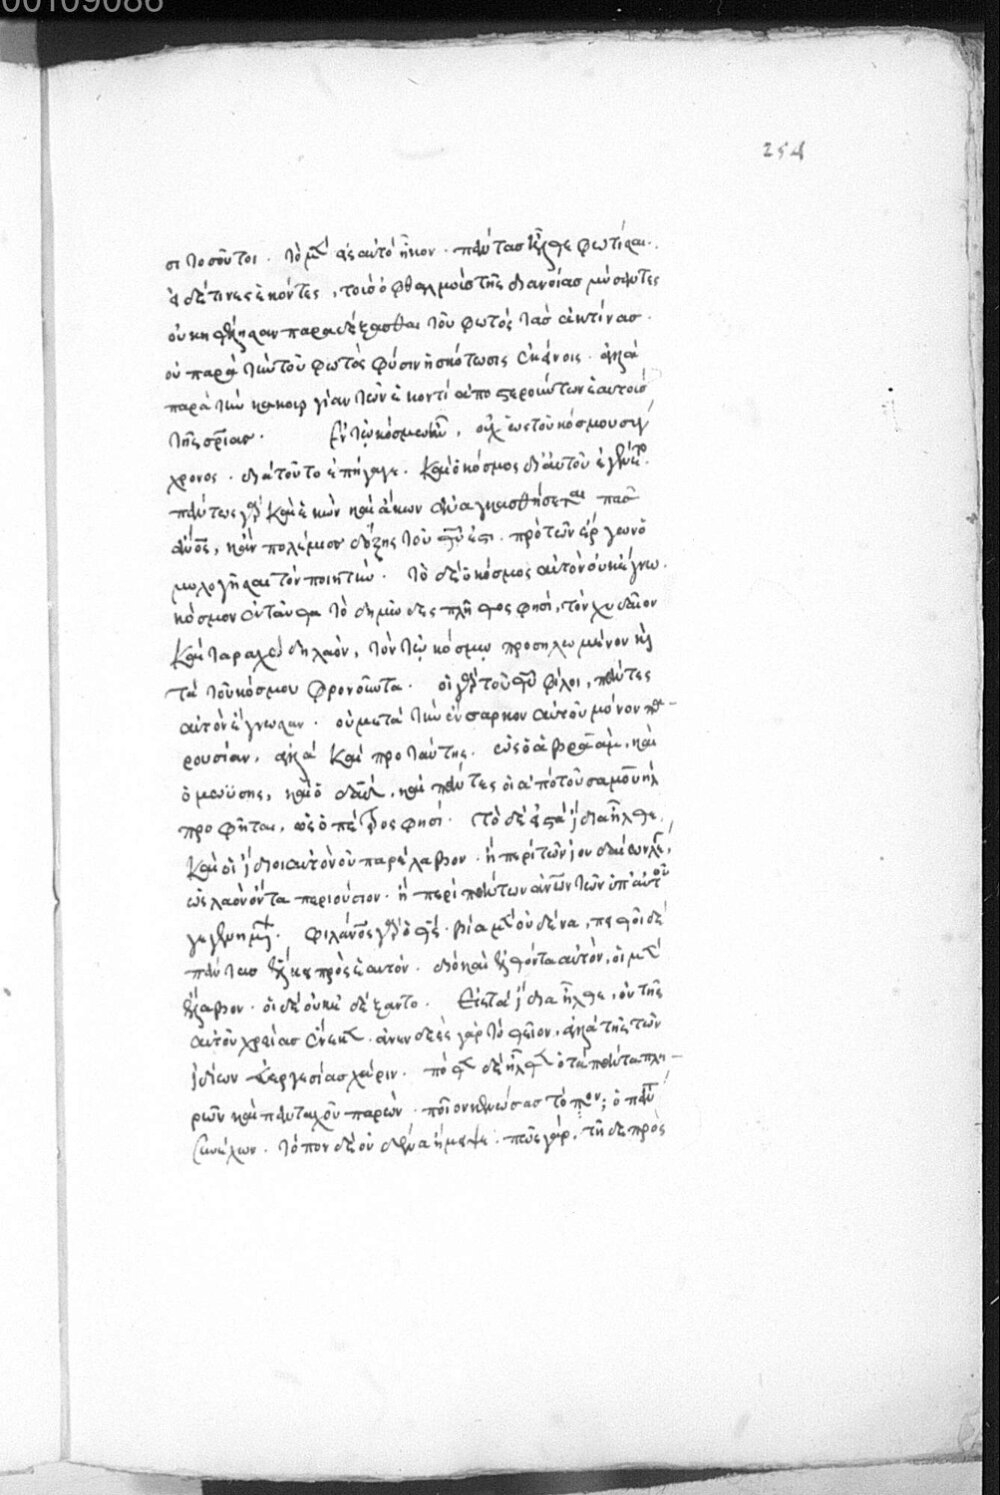 00109086
254
σι τοσοῦτοι. τὸ μ(ὲν) εἰς αὐτὸ ἧκον. πάντας ἦλθε φωτίσαι.
εἰ δέ τινες ἑκόντες, τοὺς ὀφθαλμοὺς τῆς διανοίας μύσαντες
οὐκ ἠθέλησαν παραδέξασθαι τοῦ φωτὸς τὰς ἀκτίνας.
οὐ παρὰ τὴν τοῦ φωτὸς φύσιν ἡ σκότωσις ἐκείνοις. ἀλλὰ
παρὰ τὴν κακουργίαν τῶν ἑκοντὶ ἀποστερούντων ἑαυτοὺς
τῆς δωρεᾶς. Ἐν τῷ κόσμῳ ἦν, οὐχ ὡς τοῦ κόσμου σύγ
χρονος. διὰ τοῦτο ἐπήγαγε. Καὶ ὁ κόσμος δι' αὐτοῦ ἐγένετο.
πάντως γὰρ καὶ ἑκὼν καὶ ἄκων ἀναγκασθήσεται πᾶς
ἄνος, κἂν πολέμιος δόξης τοῦ θυ ἐστι. πρὸ τῶν ἔργων ὁ
μολογῆσαι τὸν ποιητήν. τὸ δὲ ὁ κόσμος αὐτὸν οὐκ ἔγνω.
κόσμον ἐνταῦθα τὸ δημῶδες πλῆθος φησὶ, τὸν χυδαῖον
καὶ ταραχώδη λαὸν, τὸν τῷ κόσμῳ προσηλωμένον καὶ
τὰ τοῦ κόσμου φρονοῦντα. οἱ γὰρ τοῦ θυ φίλοι, πάντες
αὐτὸν ἔγνωσαν. οὐ μετὰ τὴν ἔνσαρκον αὐτοῦ μόνον πα
ρουσίαν, ἀλλὰ καὶ προ ταύτης. ὡς ὁ ἀβραὰμ, καὶ
ὁ μωϋσῆς, καὶ ὁ δαδ, καὶ πάντες οἱ ἀπὸ τοῦ σαμουὴλ
προφῆται, ὡς ὁ πέτρος φησί. Τὸ δὲ εἰς τὰ ἴδια ἦλθε,
καὶ οἱ ἴδιοι αὐτὸν οὐ παρέλαβον. ἢ περὶ τῶν ἰουδαίων λέγει,
ὡς λαὸν ὄντα περιούσιον. ἢ περὶ πάντων ἀνων τῶν ὑπ' αὐτοῦ
γεγενημένων. φιλάνος γὰρ ὁ θς. βίᾳ μὲν οὐδένα, πειθοῖ δὲ
πάντας ἕλκει πρὸς ἑαυτόν. διὸ καὶ ἐλθόντα αὐτὸν, οἱ μὲν
ἔλαβον. οἱ δὲ οὐκ ἐδέξαντο. Εἰς τὰ ἴδια ἦλθε, οὐ τῆς
αὐτοῦ χρείας ἕνεκεν. ἀνενδεὲς γὰρ τὸ θεῖον, ἀλλὰ τῆς τῶν
ἰδίων εὐεργεσίας χάριν. πόθεν δὲ ἦλθεν ὁ τὰ πάντα πλη
ρῶν καὶ πανταχοῦ παρών. ποῖον κενώσας τόπον; ὁ πάντα
συνέχων. τόπον δὲ οὐδένα ἤμειψε. πῶς γάρ, τῇ δὲ πρὸς